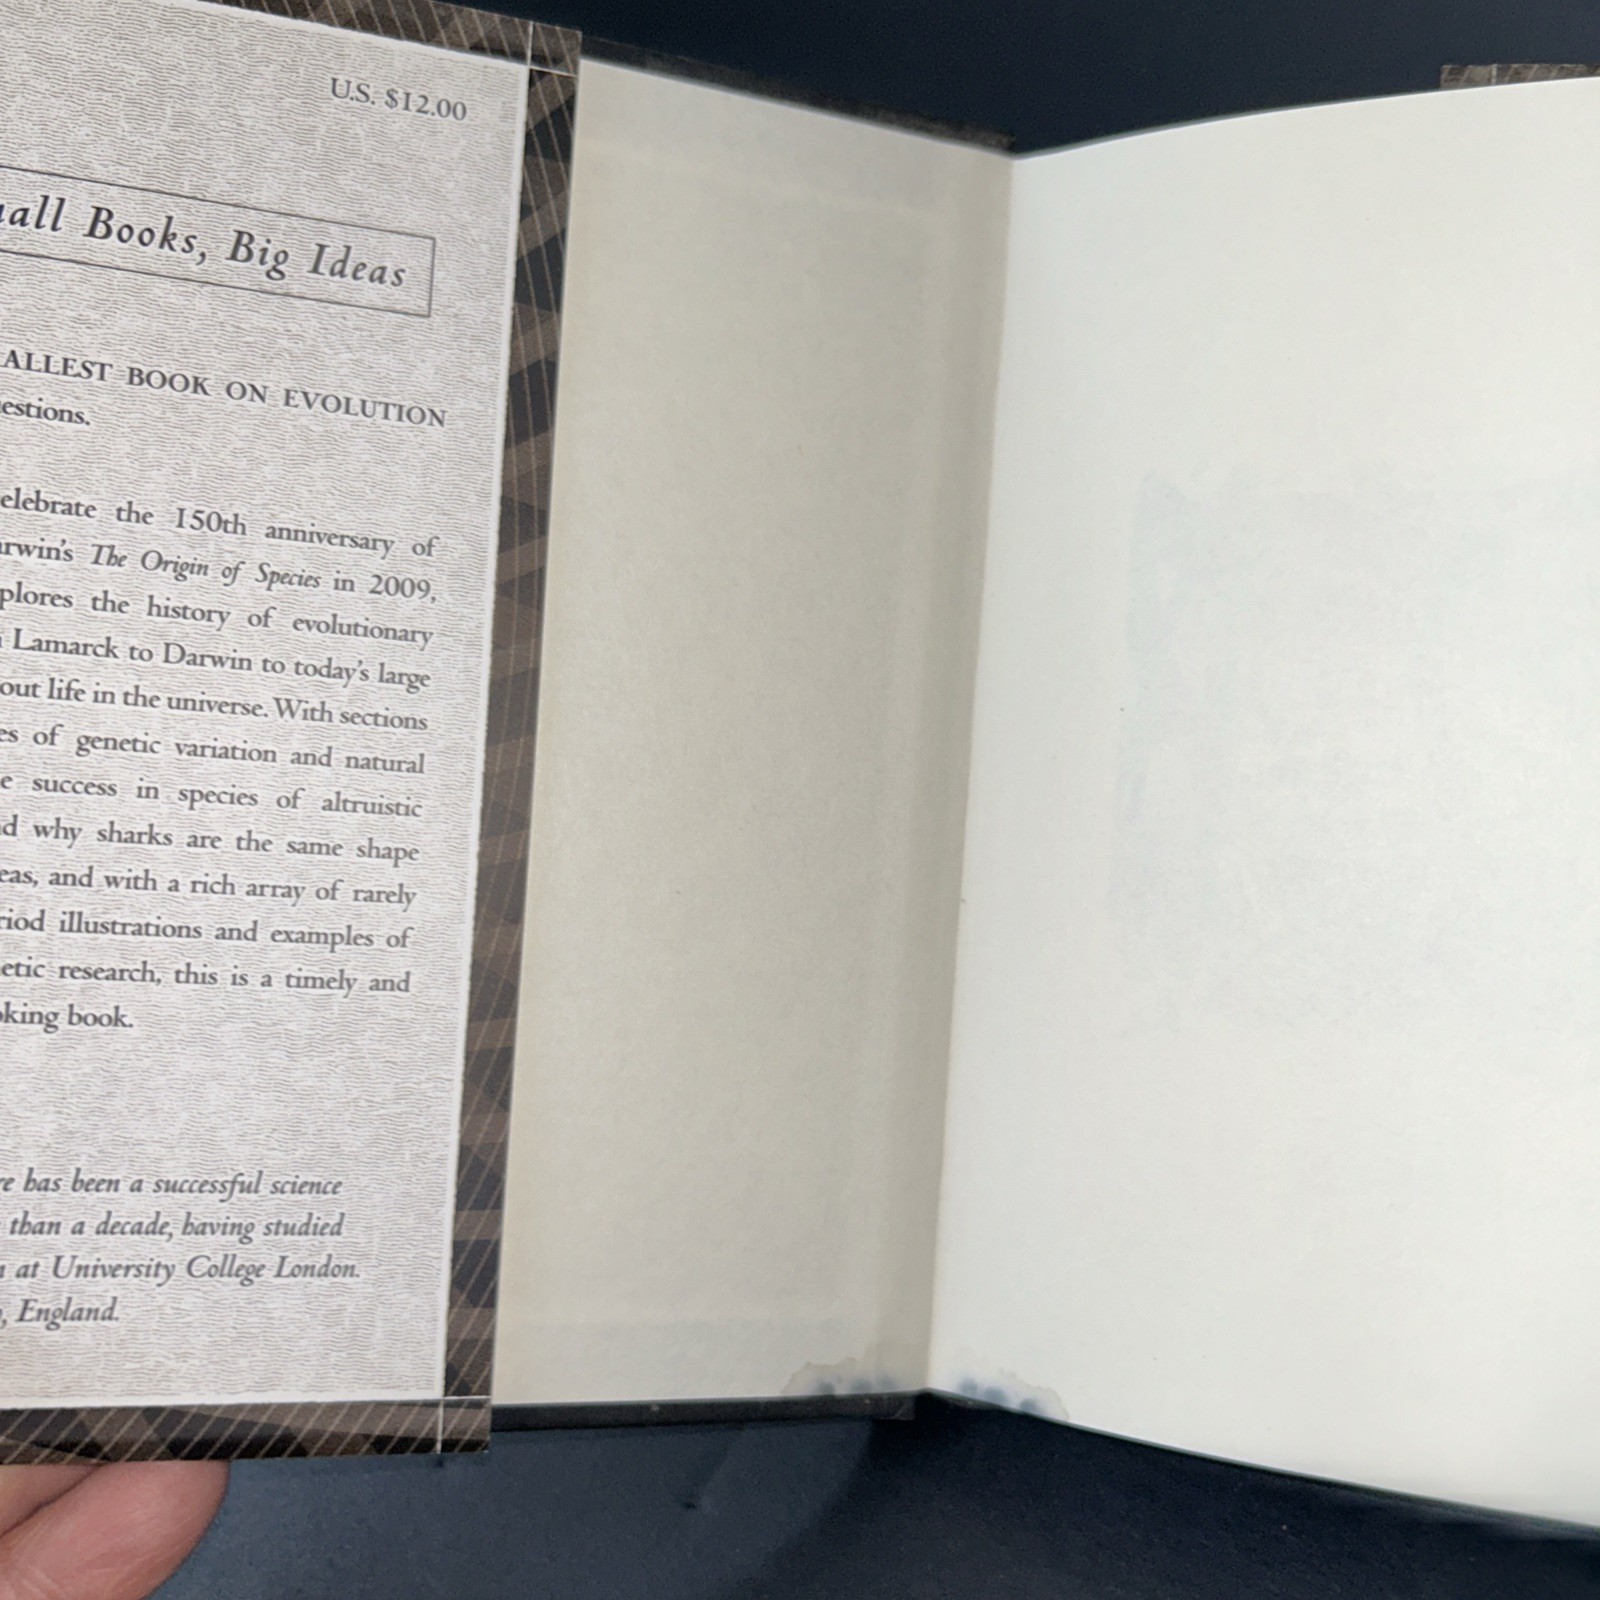 U.S. $12.00
Books, Big Ideas
BOOK ON EVOLUTION
the 150th anniversary of
The Origin of Species in 2009,
the history of evolutionary
Lamarck to Darwin to today's large
life in the universe. With sections
of genetic variation and natural
success in species of altruistic
why sharks are the same shape
and with a rich array of rarely
illustrations and examples of
research, this is a timely and
book.
has been a successful science
than a decade, having studied
at University College London.
England.